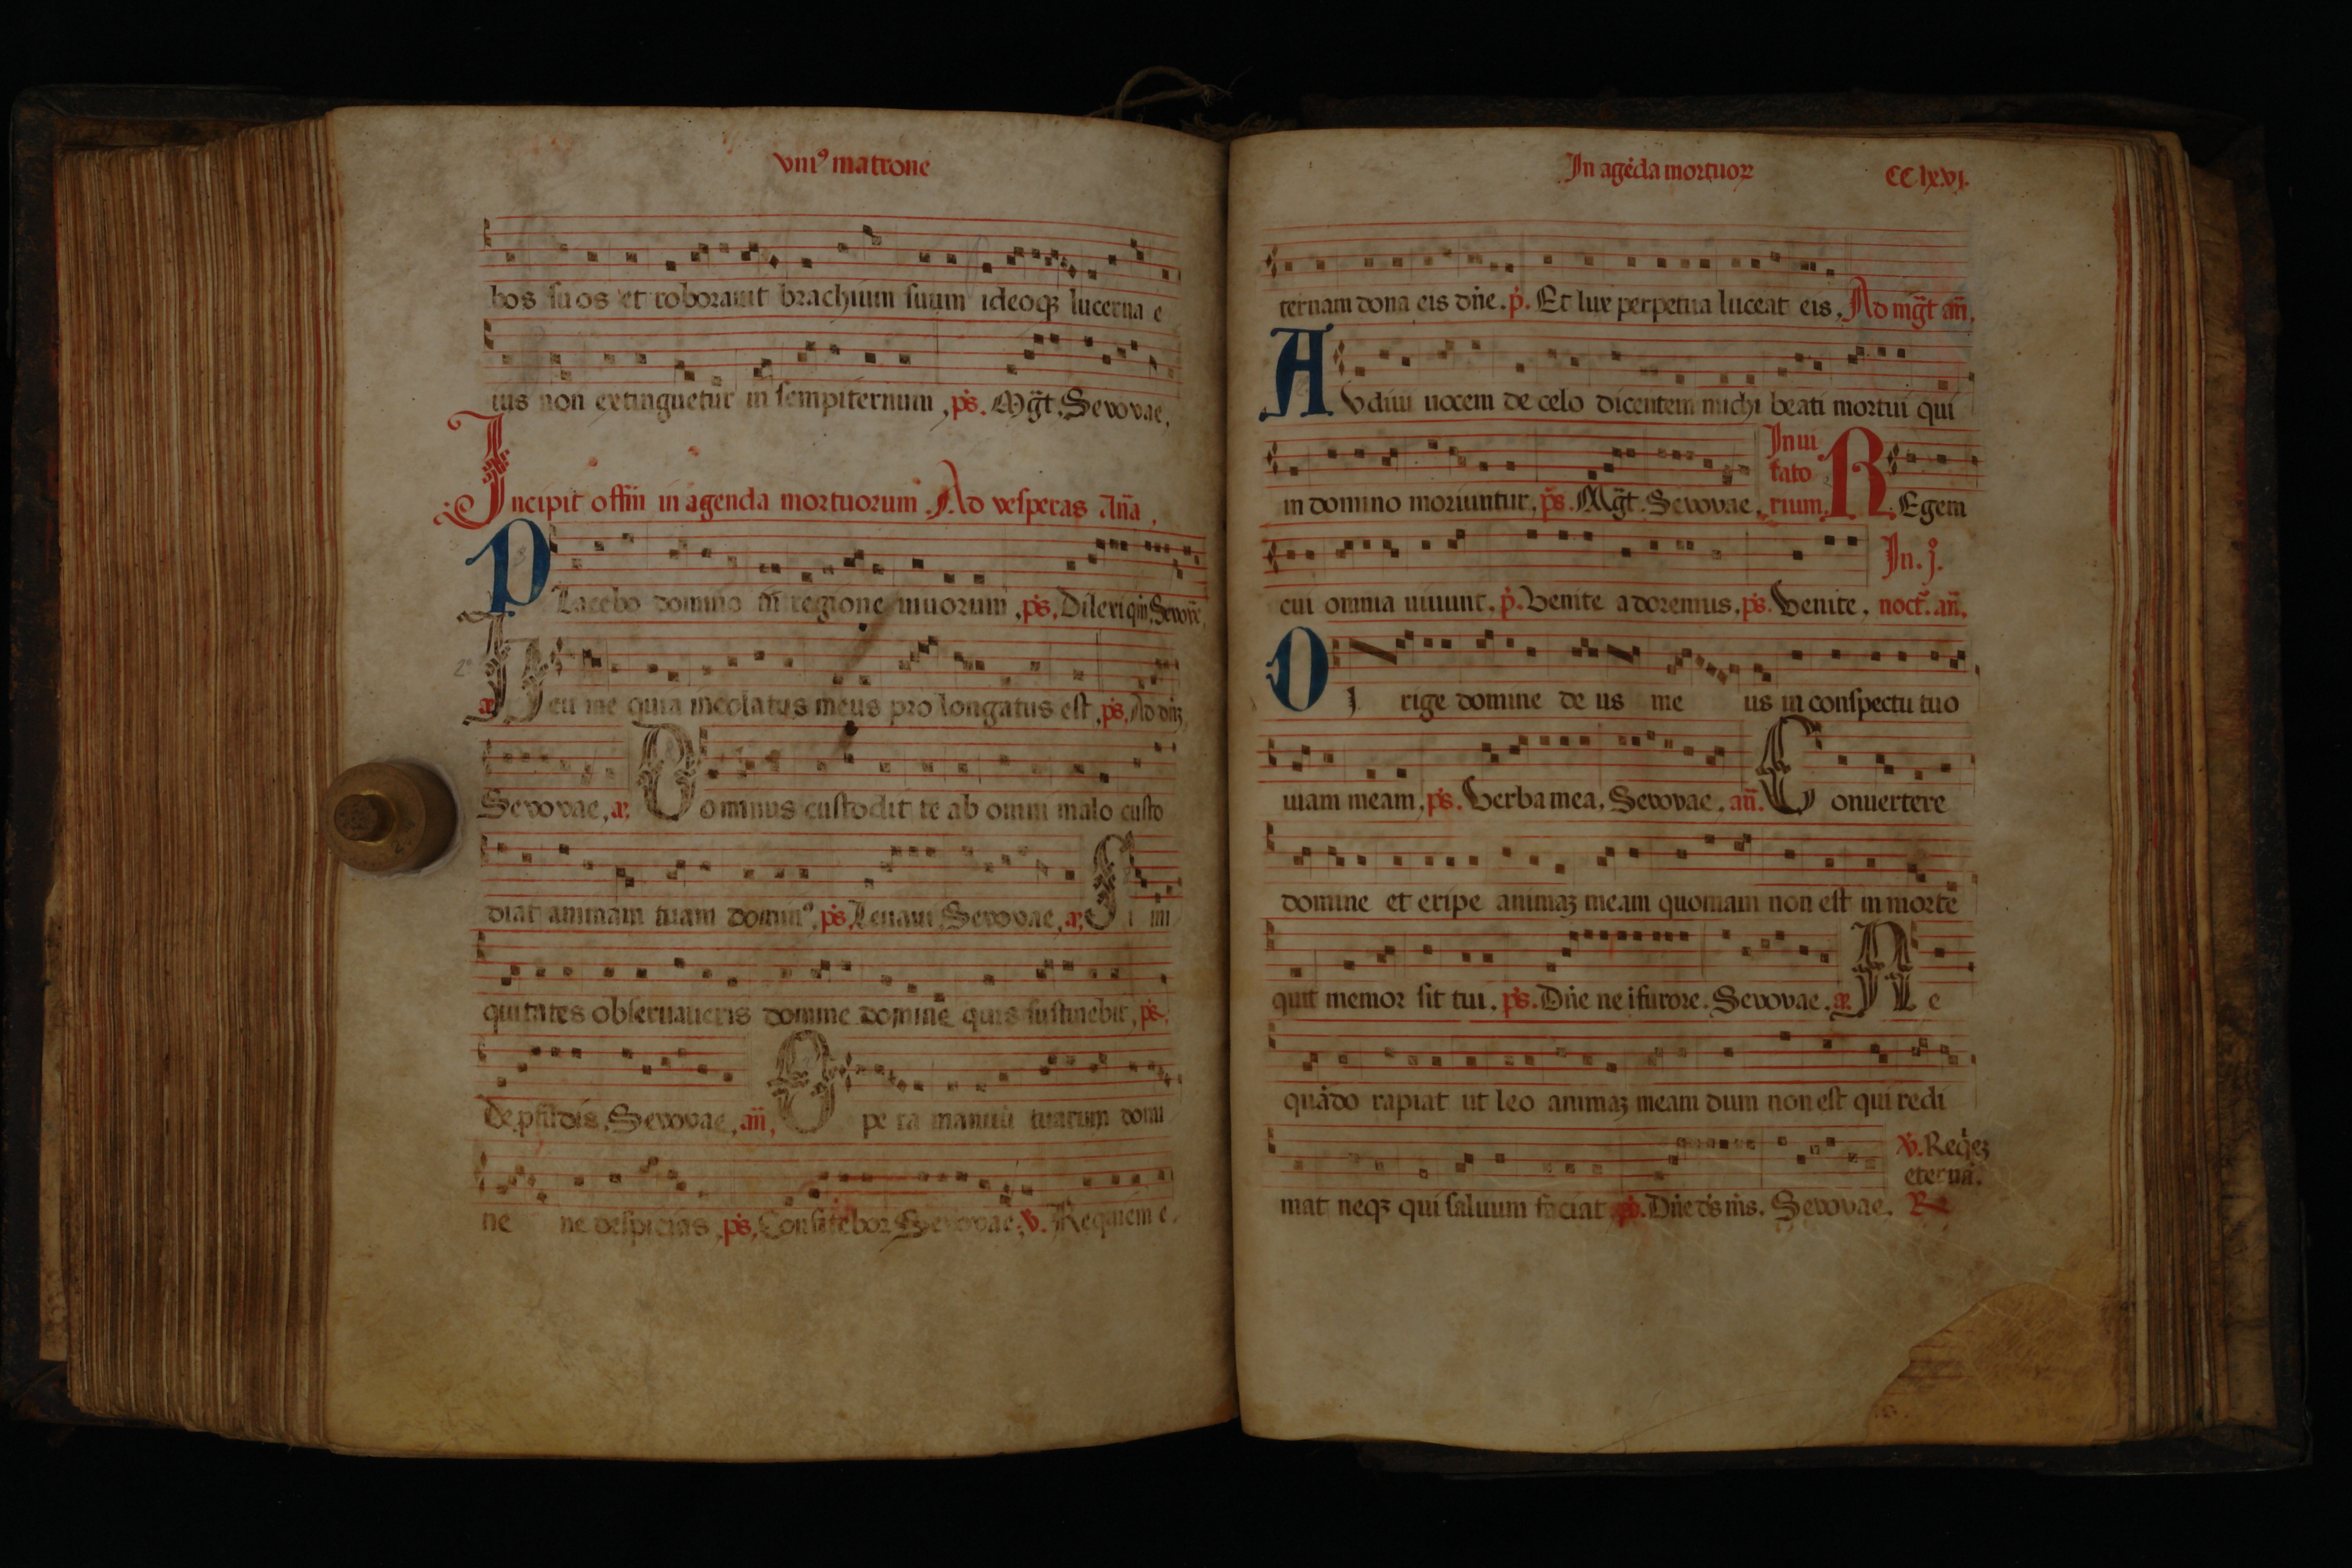 vniꝰ matrone
bos suos et roborauit brachium suum ideoqꝫ lucerna e
ius non extinguetur in sempiternum, ps. Mgt. Sevovae,
Incipit offm in agenda mortuorum. Ad vesperas Ana,
PLacebo domino in regione uiuorum, ps, Dilexi qm, Sevove,
a. Heu me quia incolatus meus pro longatus est, ps, Ad dnꝫ,
Sevovae, a. Dominus custodit te ab omni malo custo
diat animam tuam dominꝰ, ps, Leuaui, Sevovae, a, Si ini
quitates obseruaueris domine domine quis sustinebit, ps,
De pfudis, Sevovae, an, Opera manuū tuarum domi
ne ne despicias, ps, Confitebor, Sevovae, v. Requiem e.
In agēda mortuoꝝ CClxvj.
ternam dona eis dne. p. Et lux perpetua luceat eis, Ad mgt an,
AVdiui uocem de celo dicentem michi beati mortui qui
in domino moriuntur, ps. Mgt. Sevovae, Inui tato rium, REgem
cui omnia uiuunt, p. Venite adoremus, ps. Venite, In. j. noct. an.
DJrige domine deus meus in conspectu tuo
uiam meam, ps. Verba mea, Sevovae, an. Conuertere
domine et eripe animaꝫ meam quoniam non est in morte
quit memor sit tui, ps. Dne ne i furore. Sevovae, a. Ne
quādo rapiat ut leo animaꝫ meam dum non est qui redi
mat neqꝫ qui saluum faciat ps. Dne ds ms. Sevovae. v. Reqeꝫ eternā. R